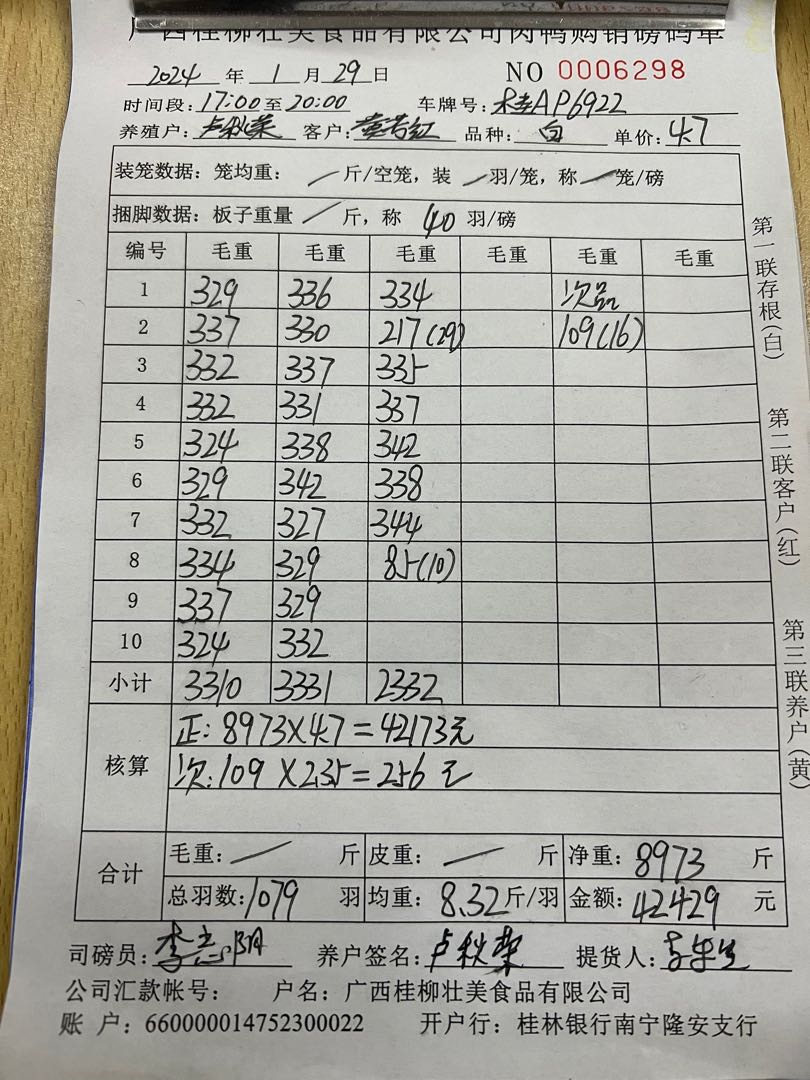 广西桂柳壮美食品有限公司肉鸭购销磅码单
2024 年 1 月 29 日 NO 0006298
时间段: 17:00 至 20:00 车牌号: 桂AP6922
养殖户: 卢秋荣 客户: 黄若红 品种: 白 单价: 4.7
装笼数据: 笼均重: / 斤/空笼, 装 / 羽/笼, 称 / 笼/磅
捆脚数据: 板子重量 / 斤, 称 40 羽/磅
编号 毛重 毛重 毛重 毛重 毛重 毛重
1 329 336 334 次品
2 337 330 217(29) 109(16)
3 332 337 335
4 332 331 337
5 324 338 342
6 329 342 338
7 332 327 344
8 334 329 85(10)
9 337 329
10 324 332
小计 3310 3331 2332
核算 正: 8973×4.7=42173元
次: 109×2.35=256元
合计 毛重: / 斤 皮重: / 斤 净重: 8973 斤
总羽数: 1079 羽 均重: 8.32 斤/羽 金额: 42429 元
司磅员: 李志阴 养户签名: 卢秋荣 提货人:
公司汇款帐号: 户名: 广西桂柳壮美食品有限公司
账 户: 660000014752300022 开户行: 桂林银行南宁隆安支行
第一联存根(白)
第二联客户(红)
第三联养户(黄)